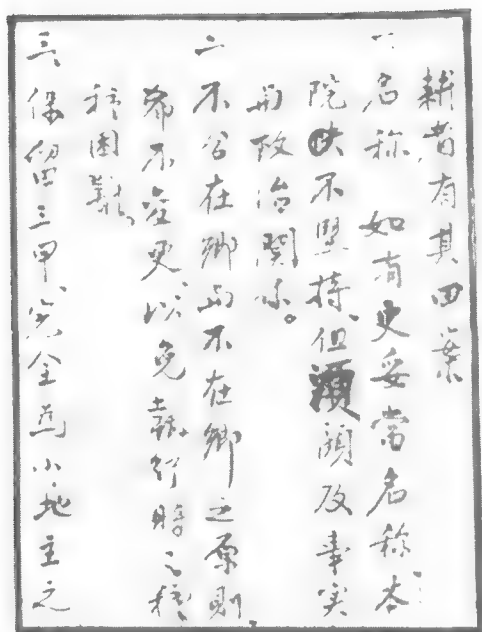 耕者有其田案
一、名称，如有更妥當名称，本
院决不堅持，但須顧及事实
与政治關係。
二、不分在鄉与不在鄉之原則，
希不变更，以免執行時之种
种困難，
三、保留三甲，完全为小地主之